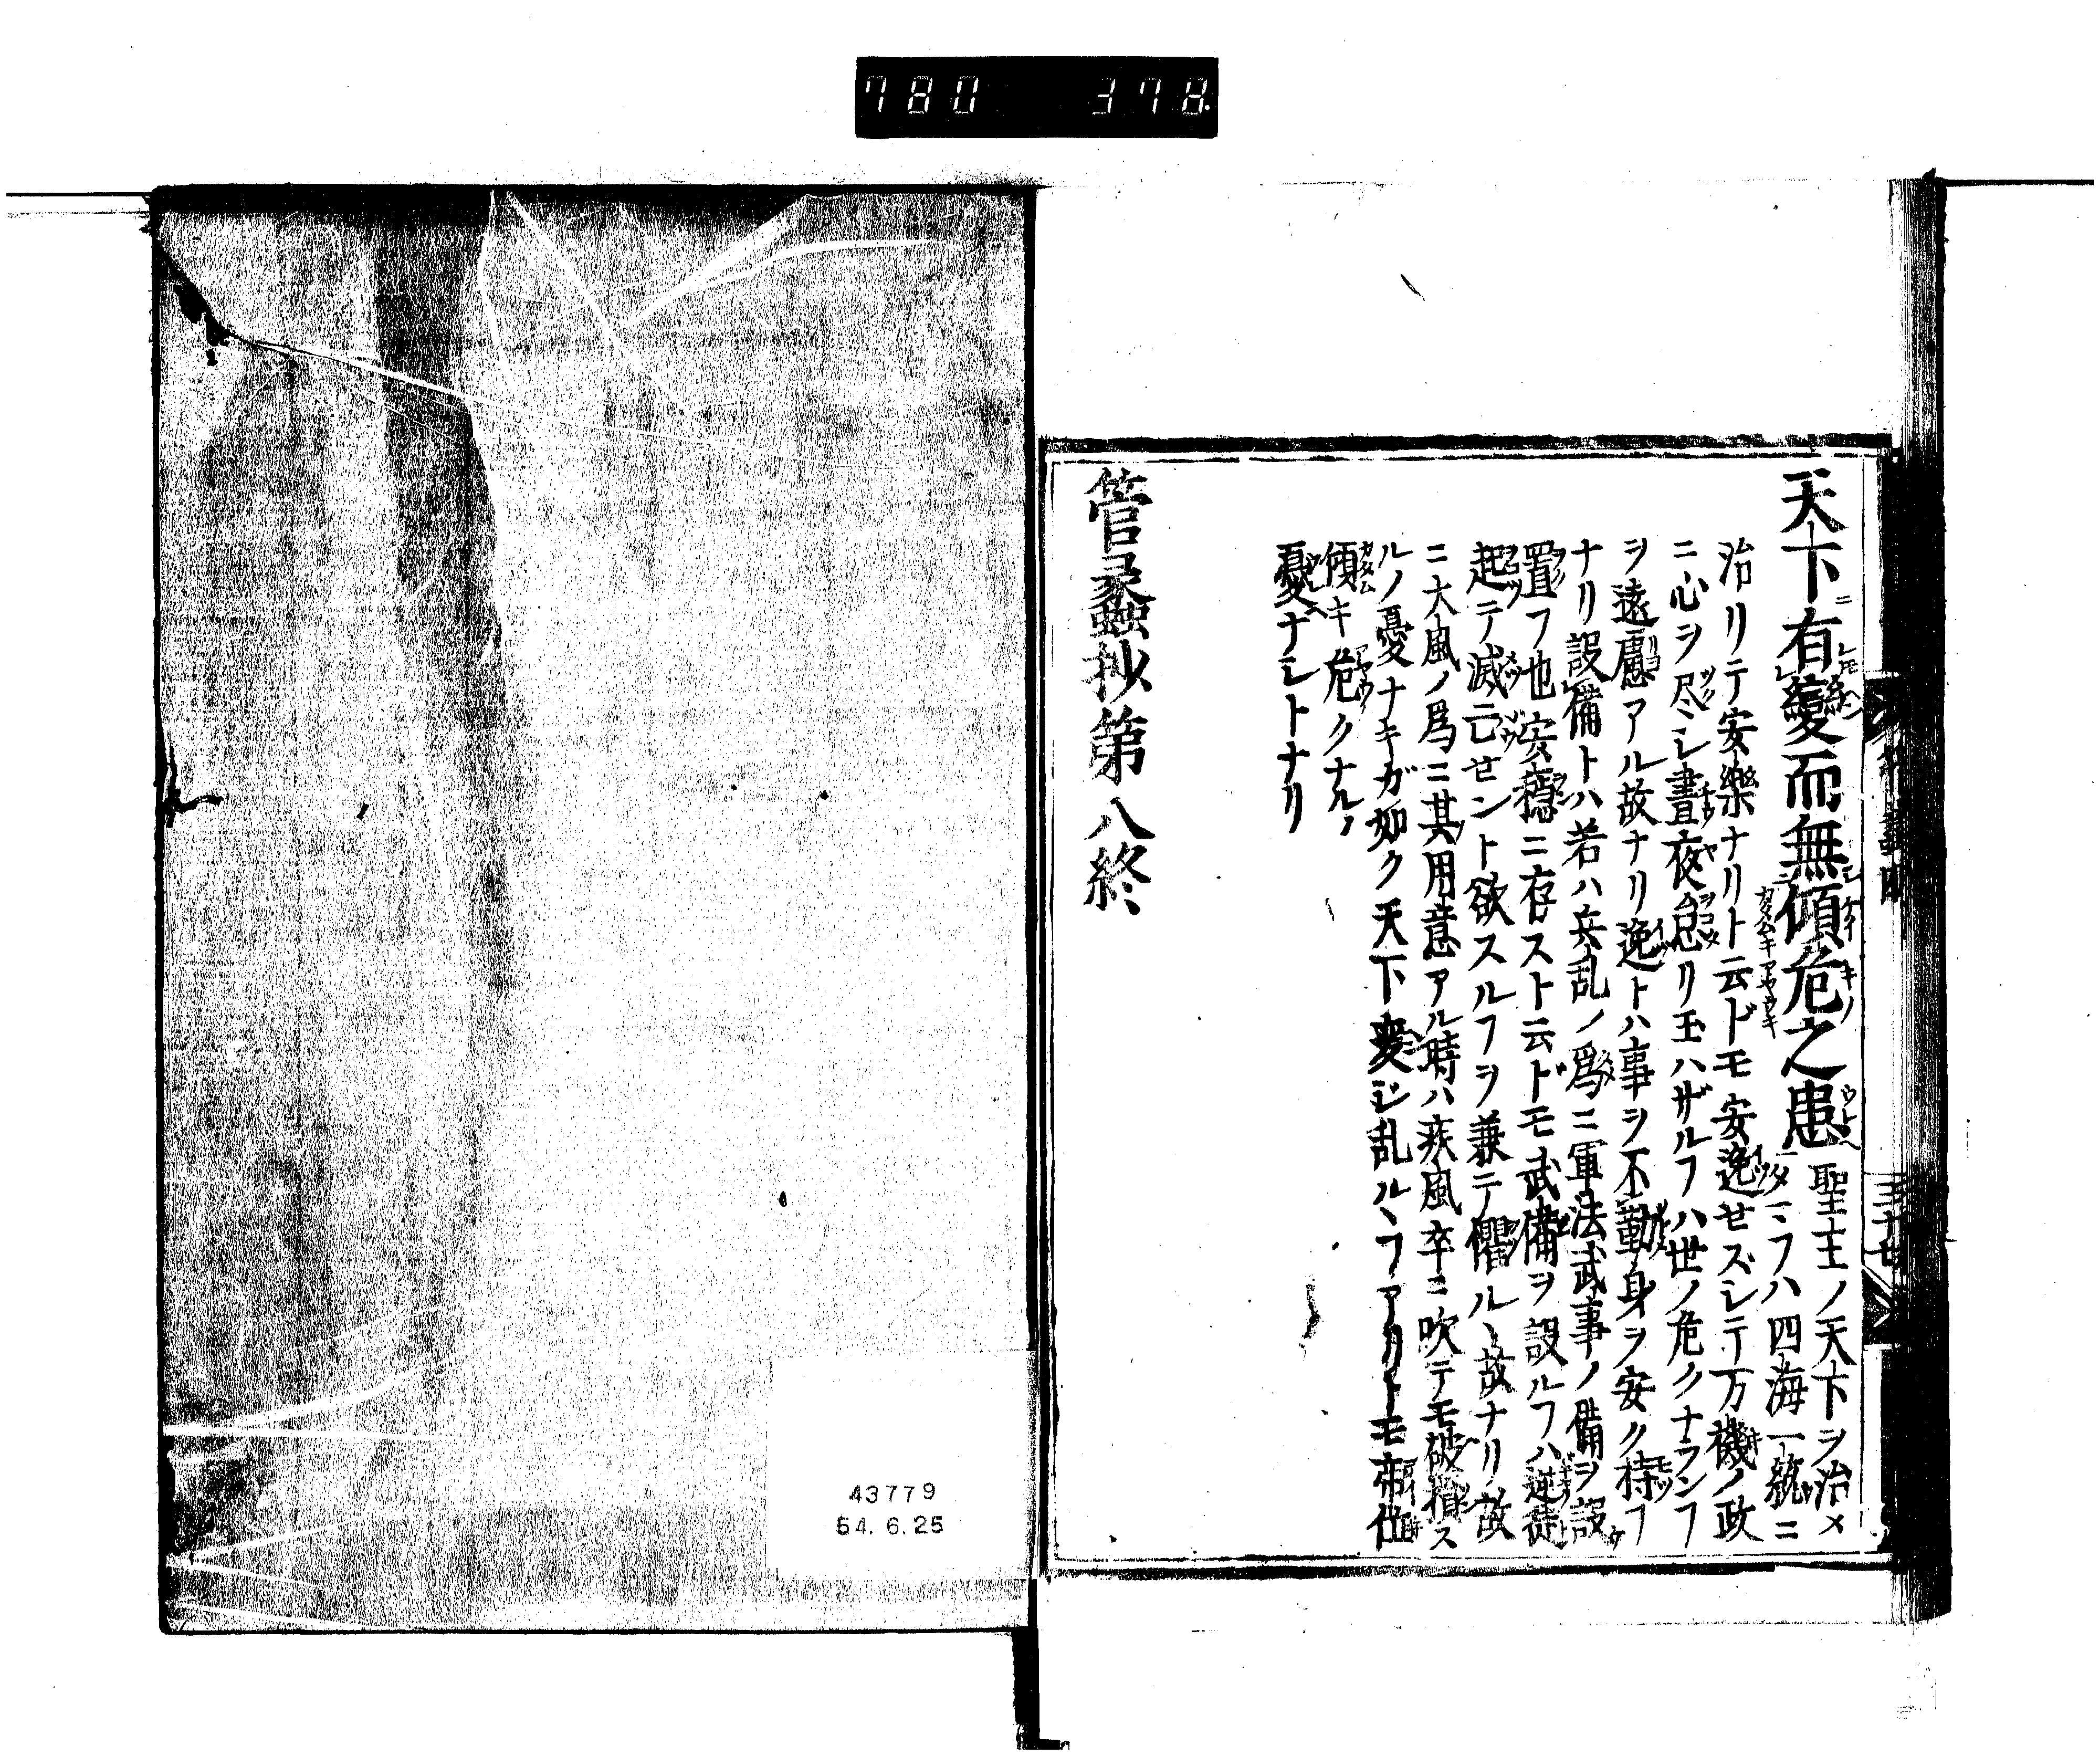 780 378
天下有變而無傾危之患 聖主ノ天下ヲ治メ
玉フハ四海一統ニ
治リテ安樂ナリト云ドモ安逸せズシテ万機ノ政
ニ心ヲ尽シ晝夜怠リ玉ハザルヿハ世ノ危クナランヿ
ヲ遠慮アル故ナリ逸トハ事ヲ不勤身ヲ安ク持ヿ
ナリ設備トハ若ハ兵乱ノ爲ニ軍法武事ノ備ヲ設
置フ也安穩ニ存スト云ドモ武備ヲ設ルヿハ逆徒
起テ滅亡せント欲スルヿヲ兼テ懼ルヽ故ナリ故
ニ大風ノ爲ニ其用意アル時ハ疾風卒ニ吹テモ破損ス
ルノ憂ナキガ如ク天下変シ乱ルヽヿアリトモ帝位
傾キ危クナルノ
憂ナシトナリ
管蠡抄第八終
43779
54. 6.25